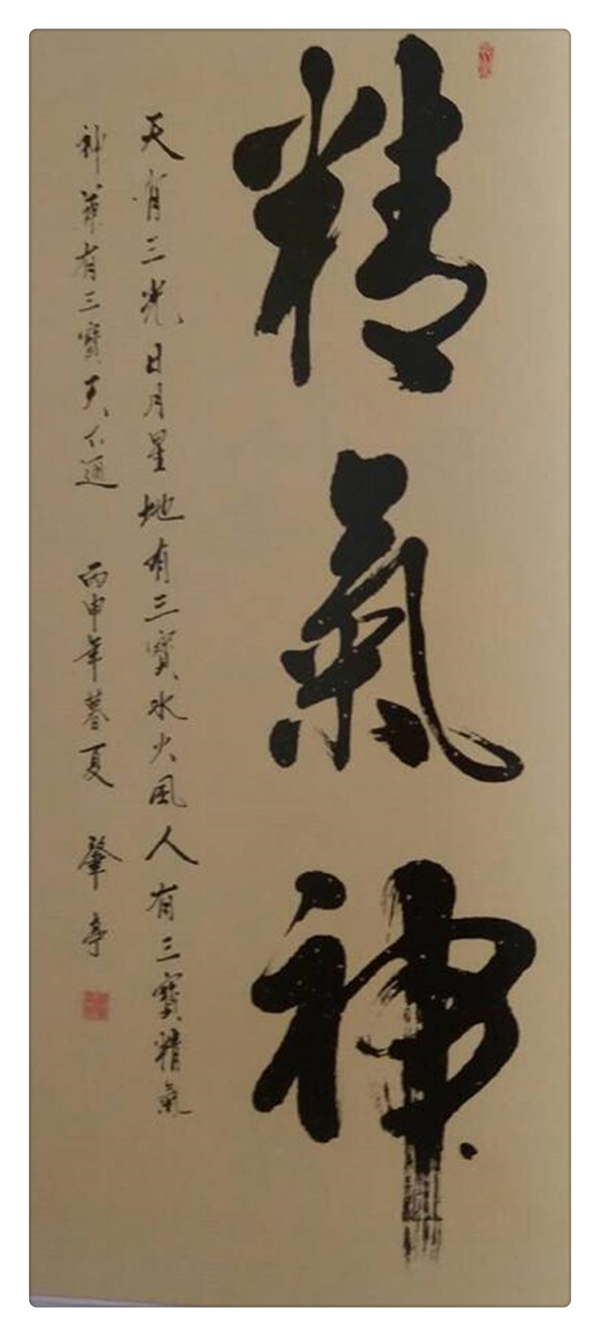 精氣神
天有三光日月星地有三寶水火風人有三寶精氣
神兼有三寶天下通 丙申年暮夏 肇亭